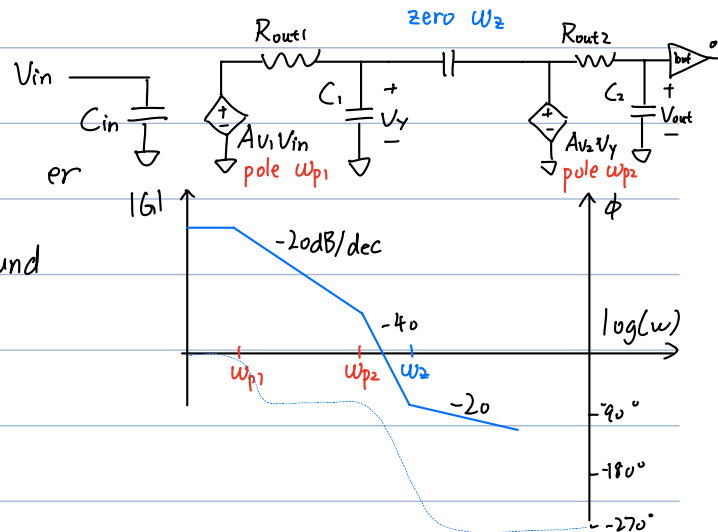 zero ωz
Rout1
Rout2
Vin
Cin
+
-
Av1Vin
C1
+
Vy
-
+
-
Av2Vy
C2
+
Vout
-
buf
pole ωp1
pole ωp2
er
und
|G|
-20dB/dec
-40
-20
ϕ
log(ω)
ωp1
ωp2
ωz
-90°
-180°
-270°